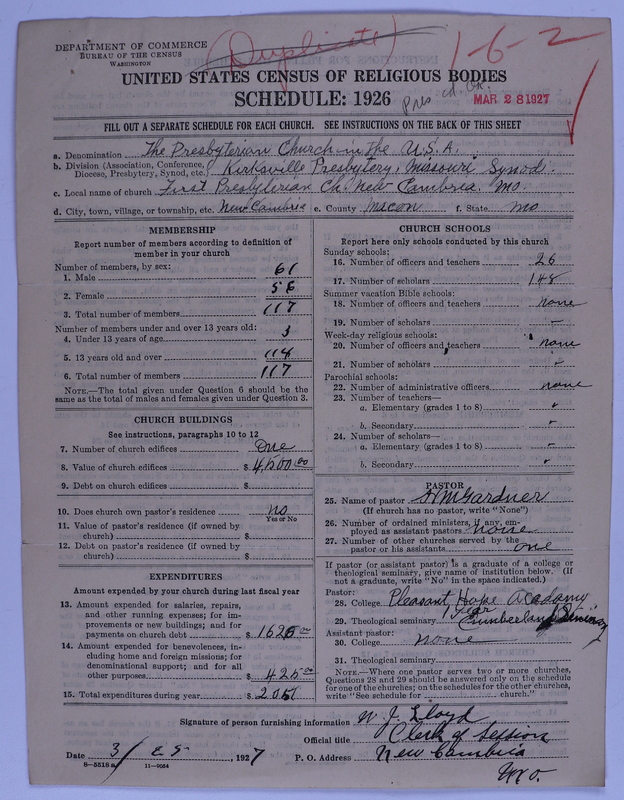 DEPARTMENT OF COMMERCE
BUREAU OF THE CENSUS
WASHINGTON
(Duplicate)
1-6-2
UNITED STATES CENSUS OF RELIGIOUS BODIES
SCHEDULE: 1926
Pres
MAR 28 1927
FILL OUT A SEPARATE SCHEDULE FOR EACH CHURCH. SEE INSTRUCTIONS ON THE BACK OF THIS SHEET
a. Denomination The Presbyterian Church in the U.S.A.
b. Division (Association, Conference, Diocese, Presbytery, Synod, etc.) Kirksville Presbytery, Missouri Synod.
c. Local name of church First Presbyterian Ch. New Cambria, Mo.
d. City, town, village, or township, etc. New Cambria e. County Macon f. State Mo
MEMBERSHIP
Report number of members according to definition of
member in your church
Number of members, by sex:
1. Male 61
2. Female 56
3. Total number of members 117
Number of members under and over 13 years old:
4. Under 13 years of age 3
5. 13 years old and over 114
6. Total number of members 117
NOTE.—The total given under Question 6 should be the
same as the total of males and females given under Question 3.
CHURCH BUILDINGS
See instructions, paragraphs 10 to 12
7. Number of church edifices One
8. Value of church edifices $ 4,500.00
9. Debt on church edifices $
10. Does church own pastor's residence no
Yes or No
11. Value of pastor's residence (if owned by
church) $
12. Debt on pastor's residence (if owned by
church) $
EXPENDITURES
Amount expended by your church during last fiscal year
13. Amount expended for salaries, repairs,
and other running expenses; for im-
provements or new buildings; and for
payments on church debt $ 1626 00
14. Amount expended for benevolences, in-
cluding home and foreign missions; for
denominational support; and for all
other purposes $ 425.00
15. Total expenditures during year $ 2051
CHURCH SCHOOLS
Report here only schools conducted by this church
Sunday schools:
16. Number of officers and teachers 26
17. Number of scholars 148
Summer vacation Bible schools:
18. Number of officers and teachers none
19. Number of scholars –
Week-day religious schools:
20. Number of officers and teachers none
21. Number of scholars –
Parochial schools:
22. Number of administrative officers none
23. Number of teachers—
a. Elementary (grades 1 to 8)
b. Secondary
24. Number of scholars—
a. Elementary (grades 1 to 8)
b. Secondary
PASTOR
25. Name of pastor Gardner
(If church has no pastor, write "None")
26. Number of ordained ministers, if any, em-
ployed as assistant pastors none
27. Number of other churches served by the
pastor or his assistants one
If pastor (or assistant pastor) is a graduate of a college or
theological seminary, give name of institution below. (If
not a graduate, write "No" in the space indicated.)
Pastor:
28. College Pleasant Hope Academy
29. Theological seminary 1 Year Cumberland
Assistant pastor:
30. College none
31. Theological seminary
NOTE.—Where one pastor serves two or more churches,
Questions 28 and 29 should be answered only on the schedule
for one of the churches; on the schedules for the other churches,
write "See schedule for church."
Signature of person furnishing information W. J. Lloyd
Official title Clerk of Session
Date 3/25, 1927 P. O. Address New Cambria
Mo.
8—5518 a 11—9064